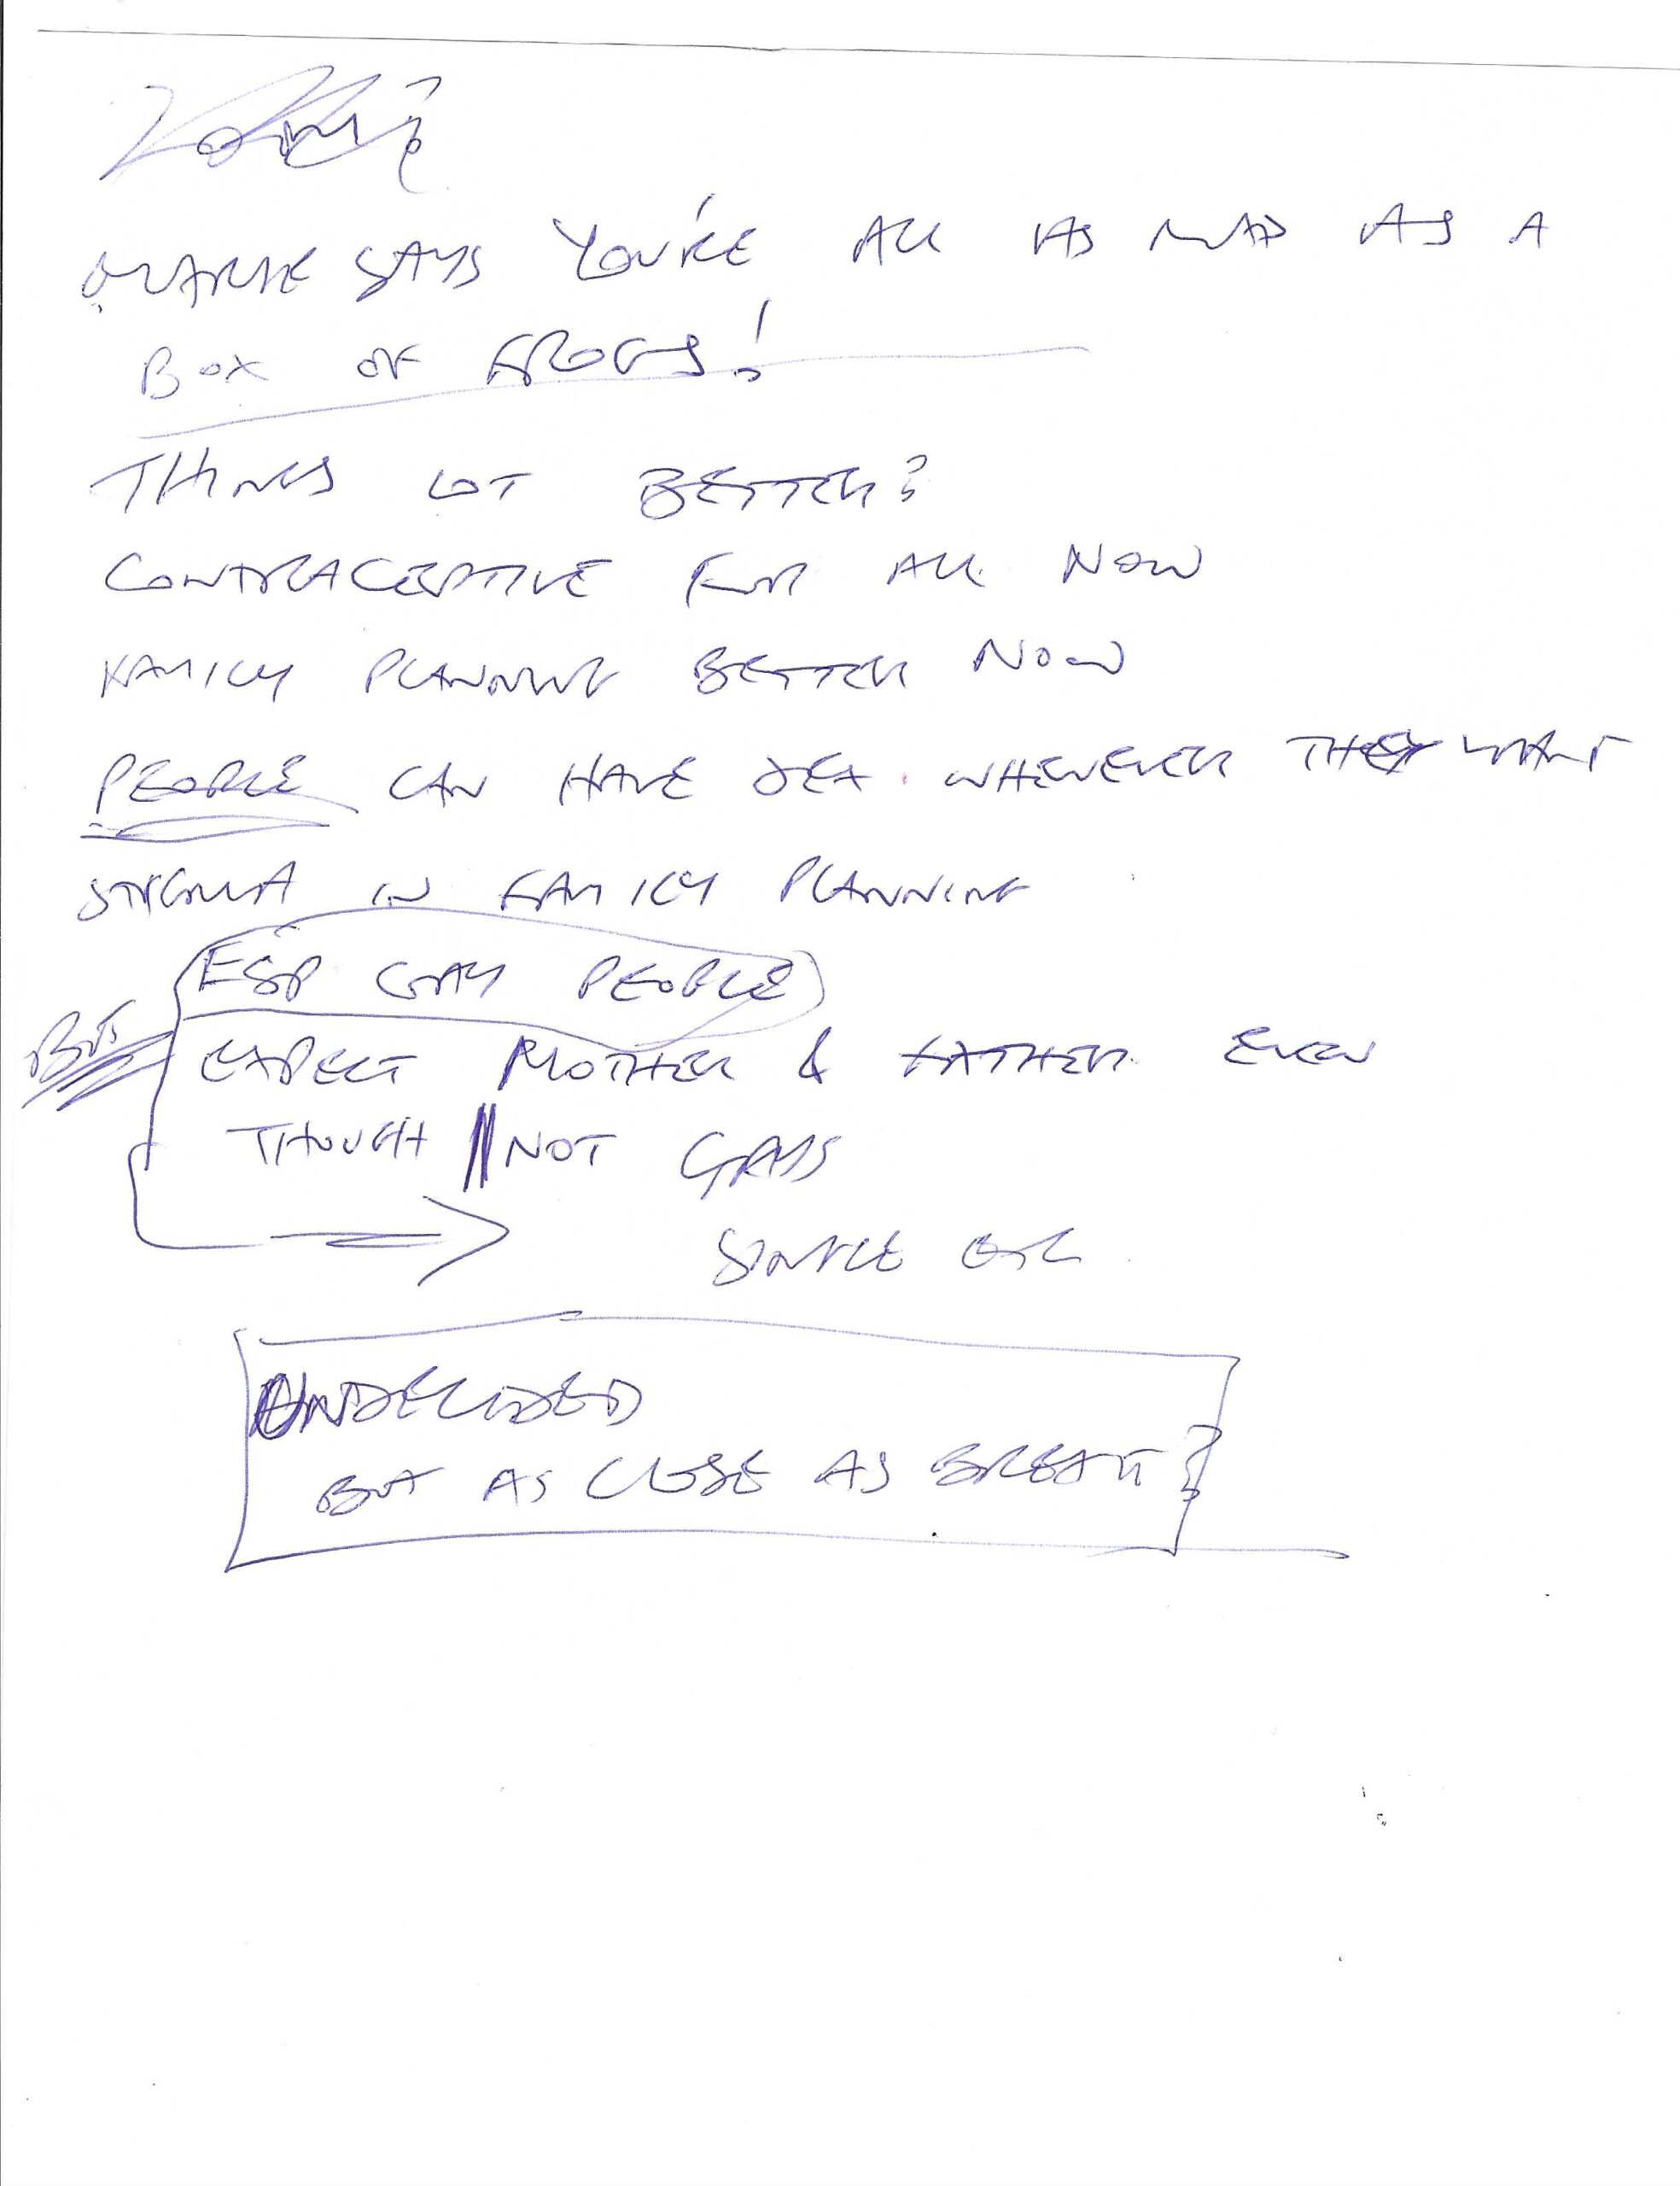 MARIE SAYS YOU'RE ALL AS MAD AS A
BOX OF FROGS!
THINGS LOT BETTER?
CONTRACEPTIVE FOR ALL NOW
FAMILY PLANNING BETTER NOW
PEOPLE CAN HAVE SEX WHENEVER THEY WANT
STIGMA IN FAMILY PLANNING
(ESP GAY PEOPLE)
BUT EXPECT MOTHER & FATHER EVEN
THOUGH NOT GAYS
SINGLE
UNDECIDED
BUT AS CLOSE AS